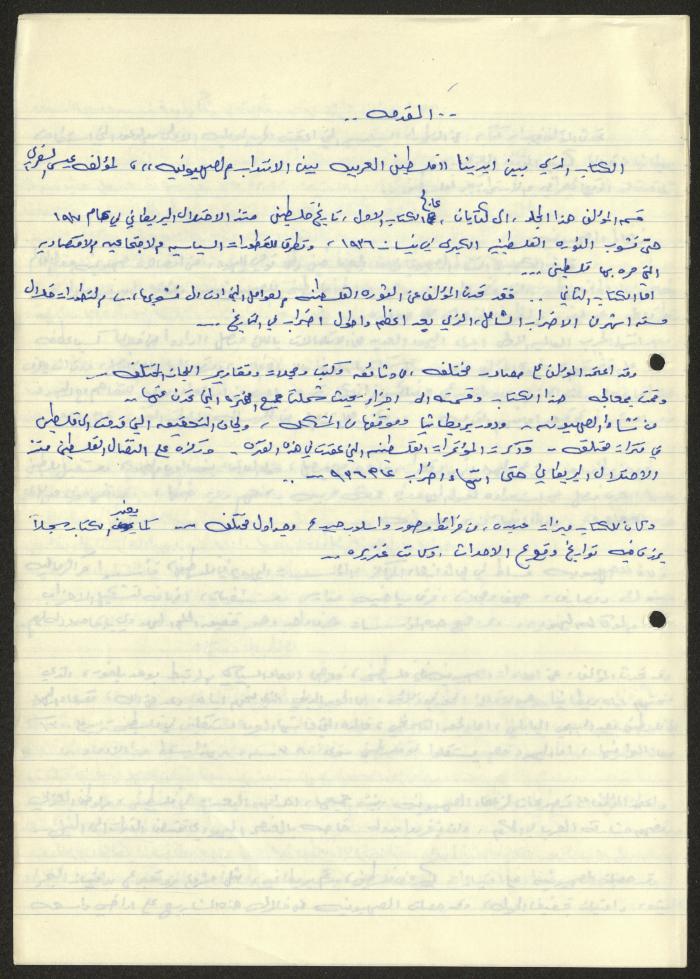 -- المقدمه --
الكتاب الذي بين ايدينا "فلسطين العربيه بين الانتداب والصهيونيه"، لمؤلفه عيسى السفري
قسم المؤلف هذا المجلد، الى كتابان، الكتاب الاول، تاريخ فلسطين منذ الاحتلال البريطاني في عام ١٩١٧
حتى نشوب الثوره الفلسطينيه الكبرى في نيسان ١٩٣٦، وتطرق للتطورات السياسيه والاجتماعيه والاقتصاديه
التي مره بها فلسطين ...
اما الكتاب الثاني .. فقد تحدث المؤلف عن الثوره الفلسطينيه والعوامل التي ادت الى نشوبها، والتطورات خلال
سته اشهر من الاضراب الشامل، الذي يعد اعظم واطول اضراب في التاريخ --
وقد اعتمد المؤلف على مصادر مختلفه، من وثائق وكتب ومجلات وتقارير اللجان المختلفه --
وقمت بمعالجة هذا الكتاب وقسمته الى اجزاء بحيث شملت جميع الفتره التي تحدث عنها --
من نشاط الصهيونيه - ودور بريطانيا وموقفها من المشكله - ولجان التحقيق التي قدمت الى فلسطين
في فترات مختلفه - وذكرت المؤتمرات الفلسطينيه التي عقدت في هذه الفتره - وركزت على النضال الفلسطيني منذ
الاحتلال البريطاني حتى انتهاء اضراب عام ١٩٣٦ --
وكان للكتاب ميزات عديده، من خرائط وصور وجداول مختلفه -- كما يعتبر الكتاب سجلاً
فيه تواريخ وقوع الاحداث، وكانت غزيره --